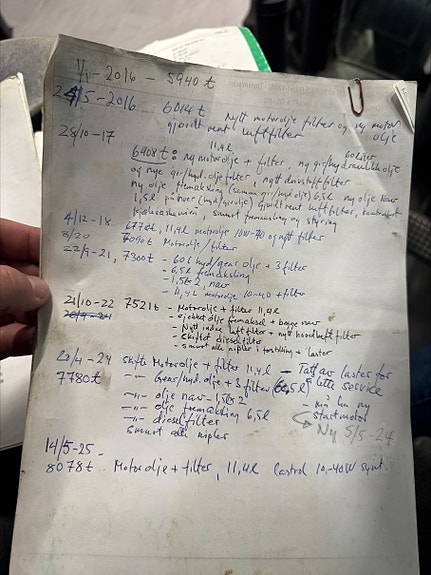 1/1-2016 - 5940 t
24/5-2016 6014 t Nytt motorolje filter og ny motor olje
gjordt rent luftfilter
28/10-17
6408 t: 11,4 l ny motorolje + filter, ny gir/hydraulikkolje 60 liter
og nye gir/hyd.olje filter, nytt drivstoffilter
ny olje fremaksling (samme gir/hyd olje) 6,5 l ny olje nav
1,5 l pr. nav (hyd/girolje) gjordt rent luftfilter, kontrollert
kjølevæske, smurt fremaksling og styring
4/12-18 6770 t, 11,4 l motorolje 10W-40 og nytt filter
8/20 7090 t Motorolje/filter
22/9-21, 7300 t - 60 l hyd/gear olje + 3 filter
- 6,5 l fremaksling
- 1,5x2, nav
- 11,4 l motorolje 10-40 + filter
21/10-22 7521 t - Motorolje + filter 11,4 l
- sjekket olje fremaksel + begge nav
- Nytt indre luftfilter + nytt hovedluftfilter
- Skiftet dieselfilter
- smurt alle nipler i traktor + laster
23/4-24 skifte Motorolje + filter 11,4 l - Tatt av laster for
7780 t -"- Gear/hyd. olje + 3 filter (60,5 l) å lette service
-"- olje nav - 1,5x2 - må ha ny
-"- olje fremaksling 6,5 l startmotor
-"- dieselfilter Ny 5/5-24
smurt alle nipler
14/5-25.
8078 t Motorolje + filter, 11,4 l Castrol 10,-40W synt.